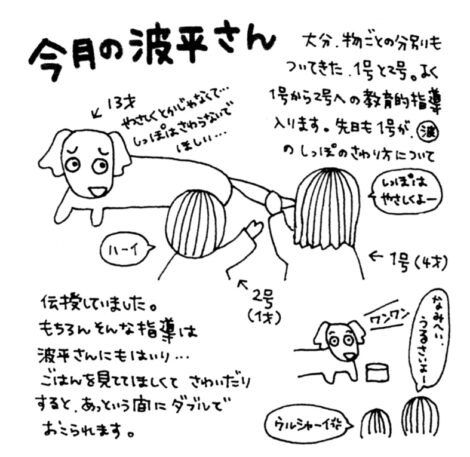 今月の波平さん
大分、物ごとの分別も
ついてきた、1号と2号。よく
1号から2号への教育的指導
入ります。先日も1号が、波
のしっぽのさわり方について
13才
やさしくとかじゃなくて…
しっぽはさわらないで
ほしい…
しっぽは
やさしくよー
ハーイ
← 1号(4才)
2号
(1才)
伝授していました。
もちろんそんな指導は
波平さんにもはいり…
ごはんを見ててほしくて さわいだり
すると、あっという間にダブルで
おこられます。
ワンワン
なみへい、
うるさいよー
ウルシャーイ☆